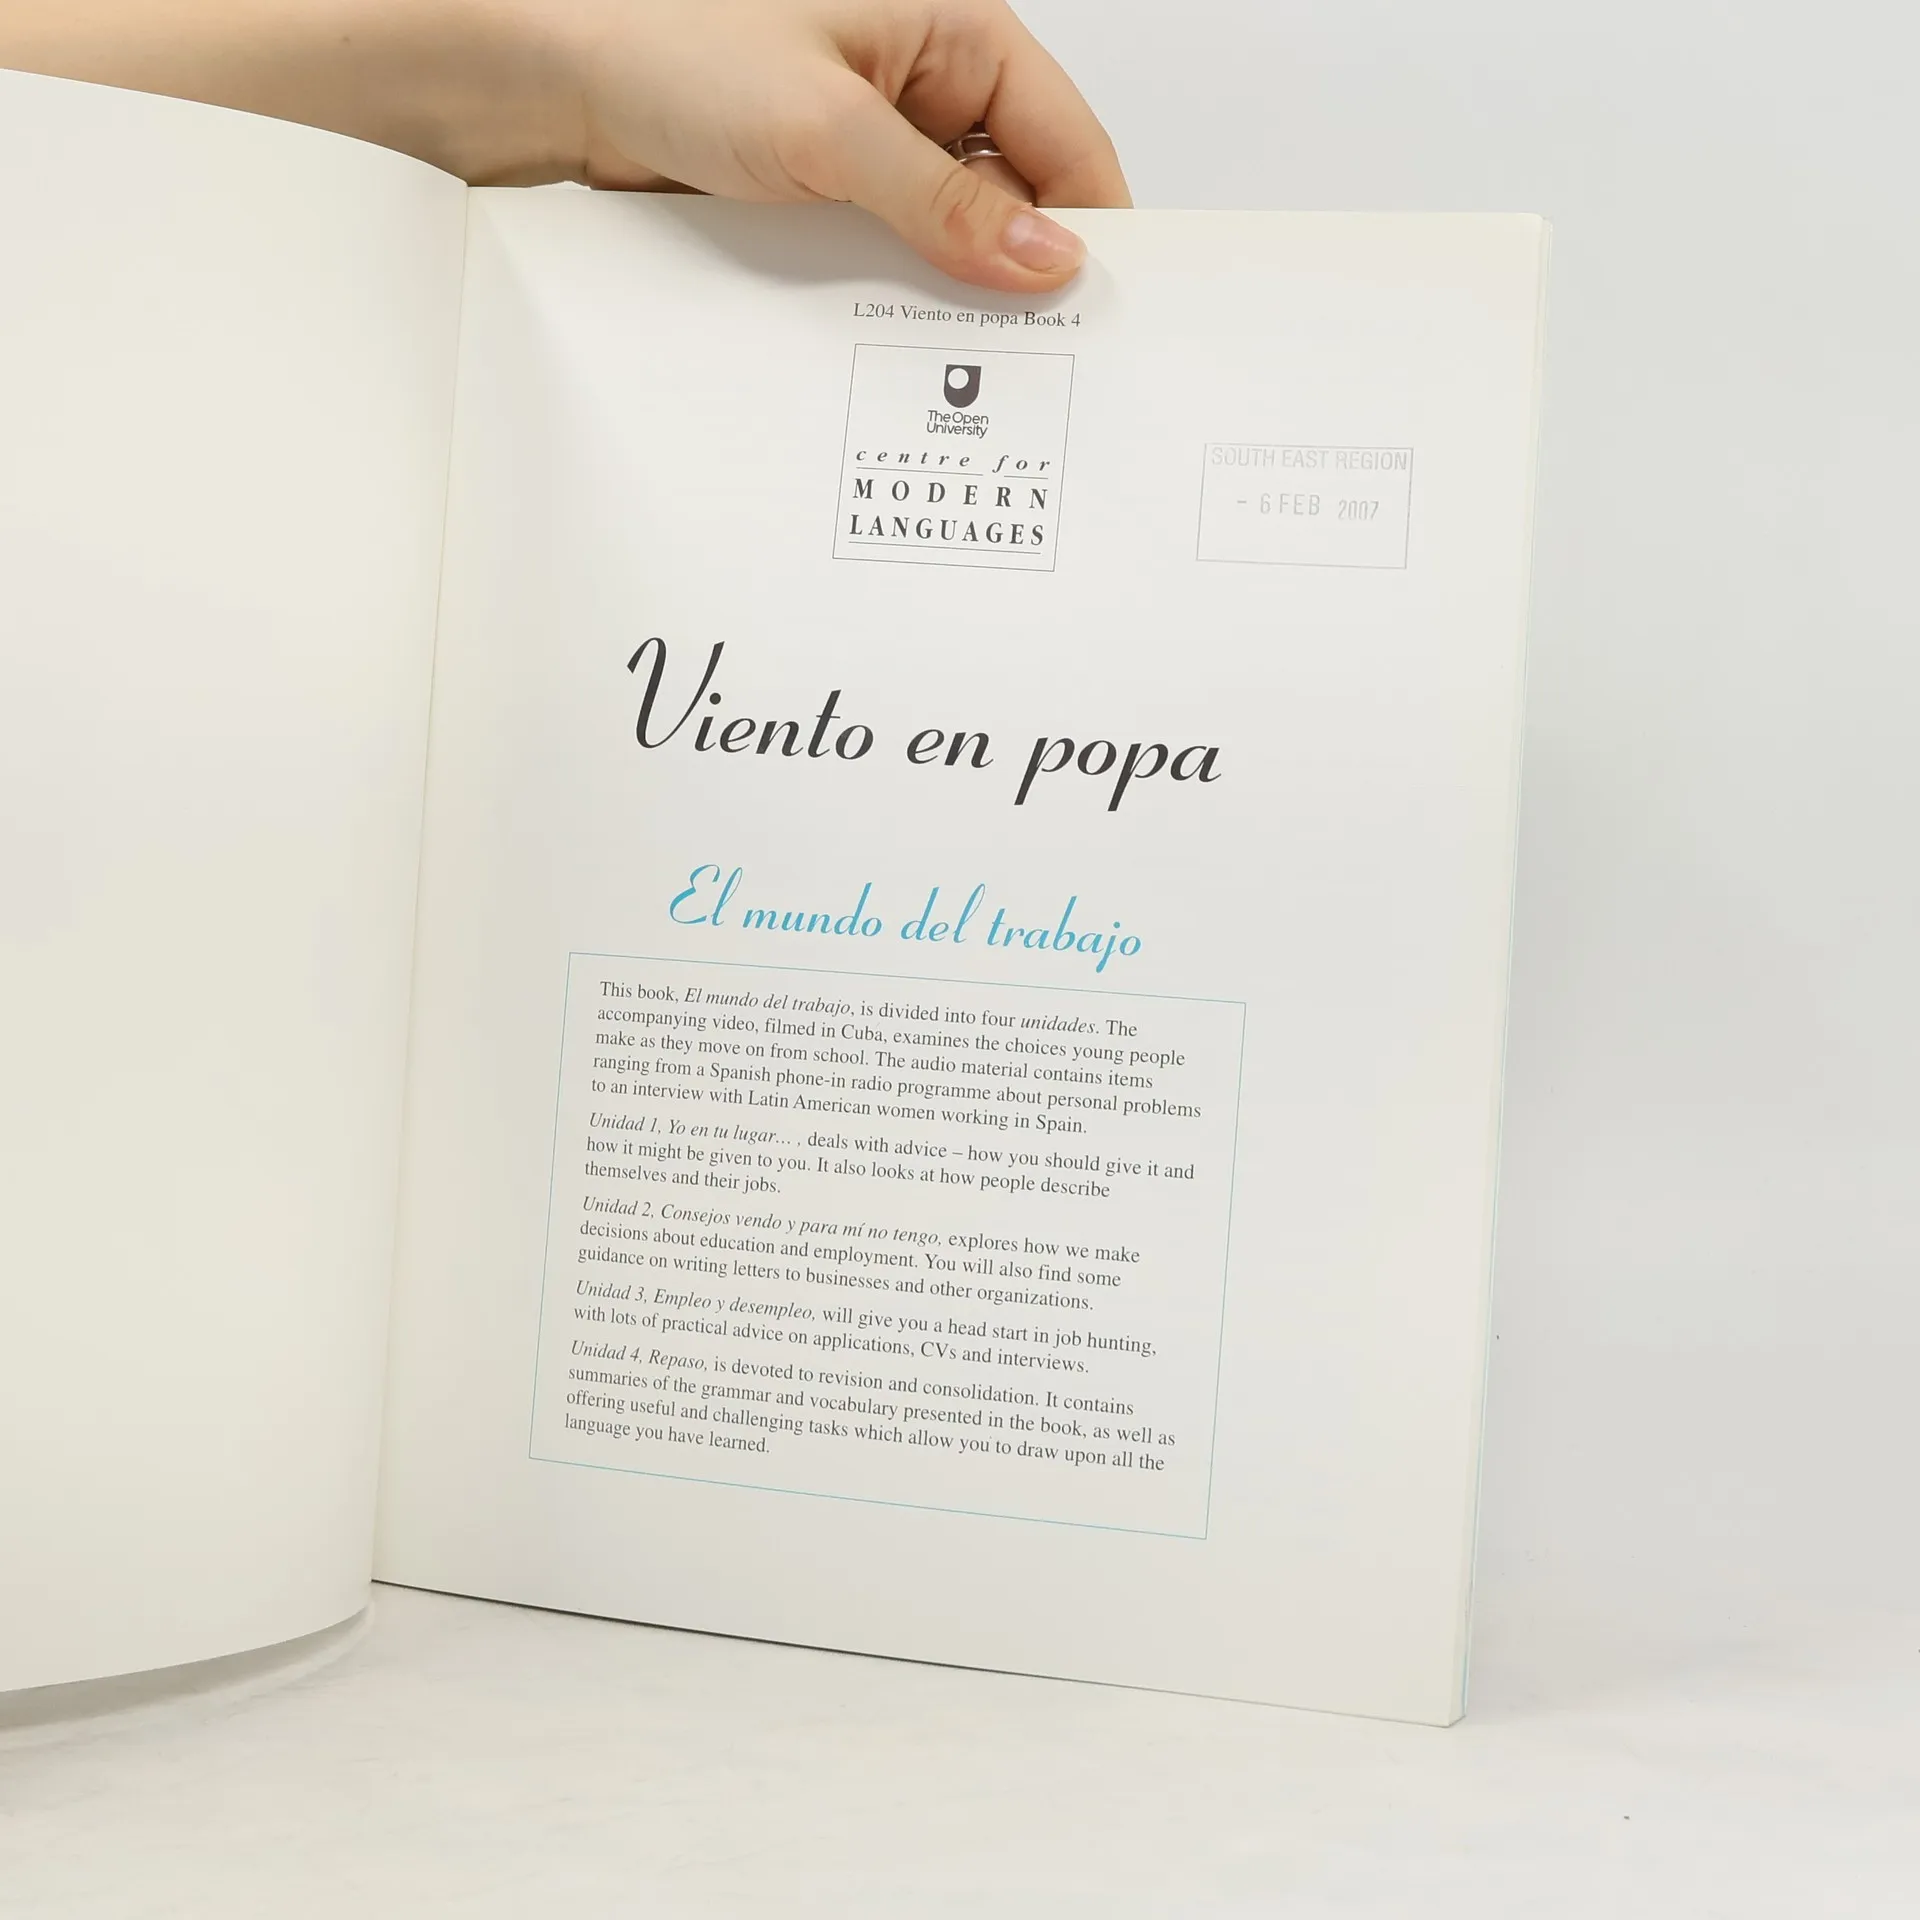 L204 Viento en popa Book 4
The Open
University
centre for
MODERN
LANGUAGES
SOUTH EAST REGION
- 6 FEB 2007
Viento en popa
El mundo del trabajo
This book, El mundo del trabajo, is divided into four unidades. The
accompanying video, filmed in Cuba, examines the choices young people
make as they move on from school. The audio material contains items
ranging from a Spanish phone-in radio programme about personal problems
to an interview with Latin American women working in Spain.
Unidad 1, Yo en tu lugar... , deals with advice – how you should give it and
how it might be given to you. It also looks at how people describe
themselves and their jobs.
Unidad 2, Consejos vendo y para mí no tengo, explores how we make
decisions about education and employment. You will also find some
guidance on writing letters to businesses and other organizations.
Unidad 3, Empleo y desempleo, will give you a head start in job hunting,
with lots of practical advice on applications, CVs and interviews.
Unidad 4, Repaso, is devoted to revision and consolidation. It contains
summaries of the grammar and vocabulary presented in the book, as well as
offering useful and challenging tasks which allow you to draw upon all the
language you have learned.